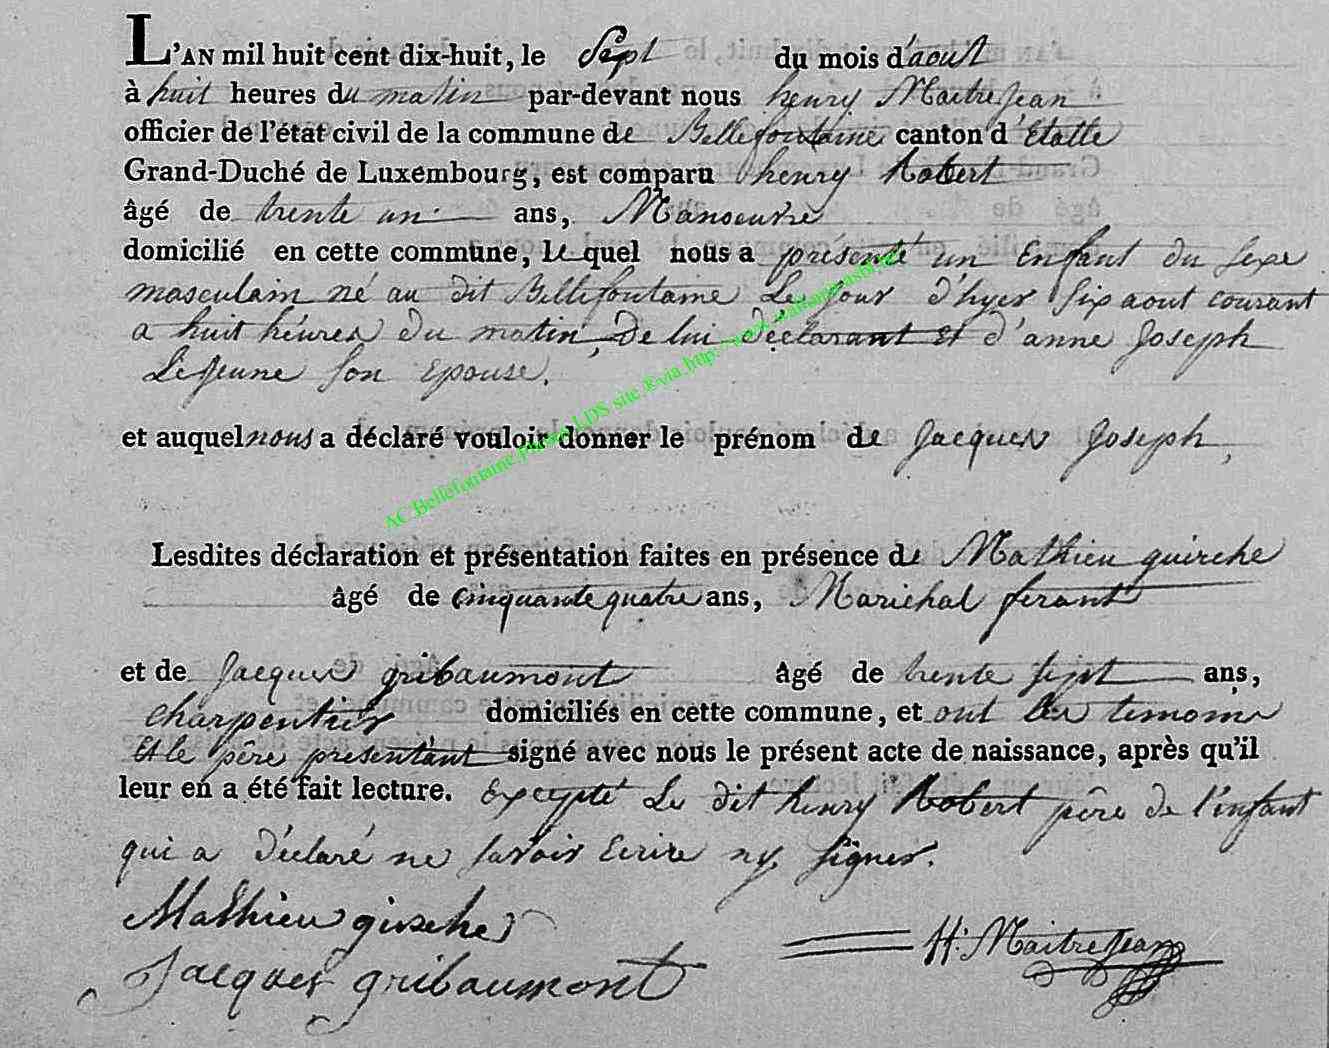 L'AN mil huit cent dix-huit, le Sept du mois d'aout
à huit heures du matin par-devant nous henry Maitrejean
officier de l'état civil de la commune de Bellefontaine canton d'Etalle
Grand-Duché de Luxembourg, est comparu henry Robert
âgé de trente un ans, Manoeuvre
domicilié en cette commune, le quel nous a présenté un Enfant du sexe
masculain né au dit Bellefontaine Le jour d'hyer Six aout courant
a huit héures du matin, De lui déclarant Et d'anne Joseph
LeJeune Son Epouse.
et auquel nous a déclaré vouloir donner le prénom de Jacques Joseph,
Lesdites déclaration et présentation faites en présence de Mathieu quirche
âgé de Cinquante quatre ans, Marichal ferant
et de Jacques gribaumont âgé de trente sept ans,
charpentier domiciliés en cette commune, et ont les temoins
Et le père presentant signé avec nous le présent acte de naissance, après qu'il
leur en a été fait lecture. Excepté Le dit henry Robert père de l'enfant
qui a déclaré ne savoir Ecrire ny signer.
Mathieu
H: MaitreJean
Jacques gribaumont
AC Bellefontaine Photos LDS site ®via http://www